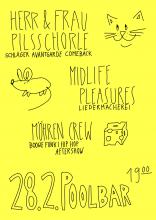 HERR & FRAU
PILSSCHORLE
SCHLAGER AVANTGARDE COMEBACK
MIDLIFE
PLEASURES
LIEDERMACHEREI
MÖHREN CREW
BOOGIE FUNK & HIP HOP
AFTERSHOW
19 00
28.2. POOLBAR